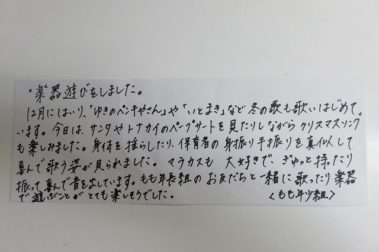 ・楽器遊びをしました。
12月にはいり、「ゆきのペンキやさん」や「いとまき」など冬の歌も歌いはじめて
います。今日は、サンタやトナカイのペープサートを見たりしながらクリスマスソング
も楽しみました。身体を揺らしたり、保育者の身振り手振りを真似して
喜んで歌う姿が見られました。マラカスも大好きで、ぎゅっと持ったり
振って喜んで音を出しています。もも年長組のお友だちと一緒に歌ったり楽器
で遊ぶことがとても楽しそうでした。 〈もも年少組〉